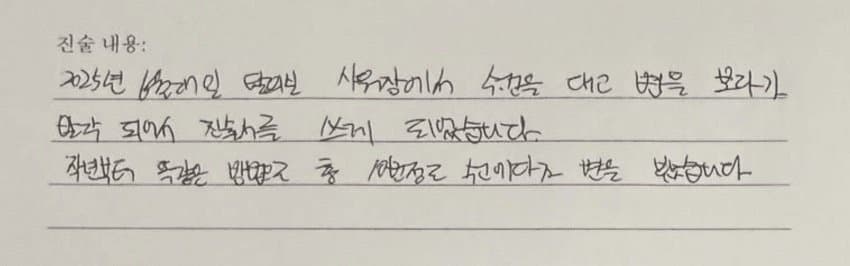 진술 내용:
2025년 탈의실 샤워장에서 수건을 대고 변을 보다가
발각 되어서 진술서를 쓰게 되었습니다.
작년부터 똑같은 방법으로 총 10번정도 수건에다가 변을 봤습니다